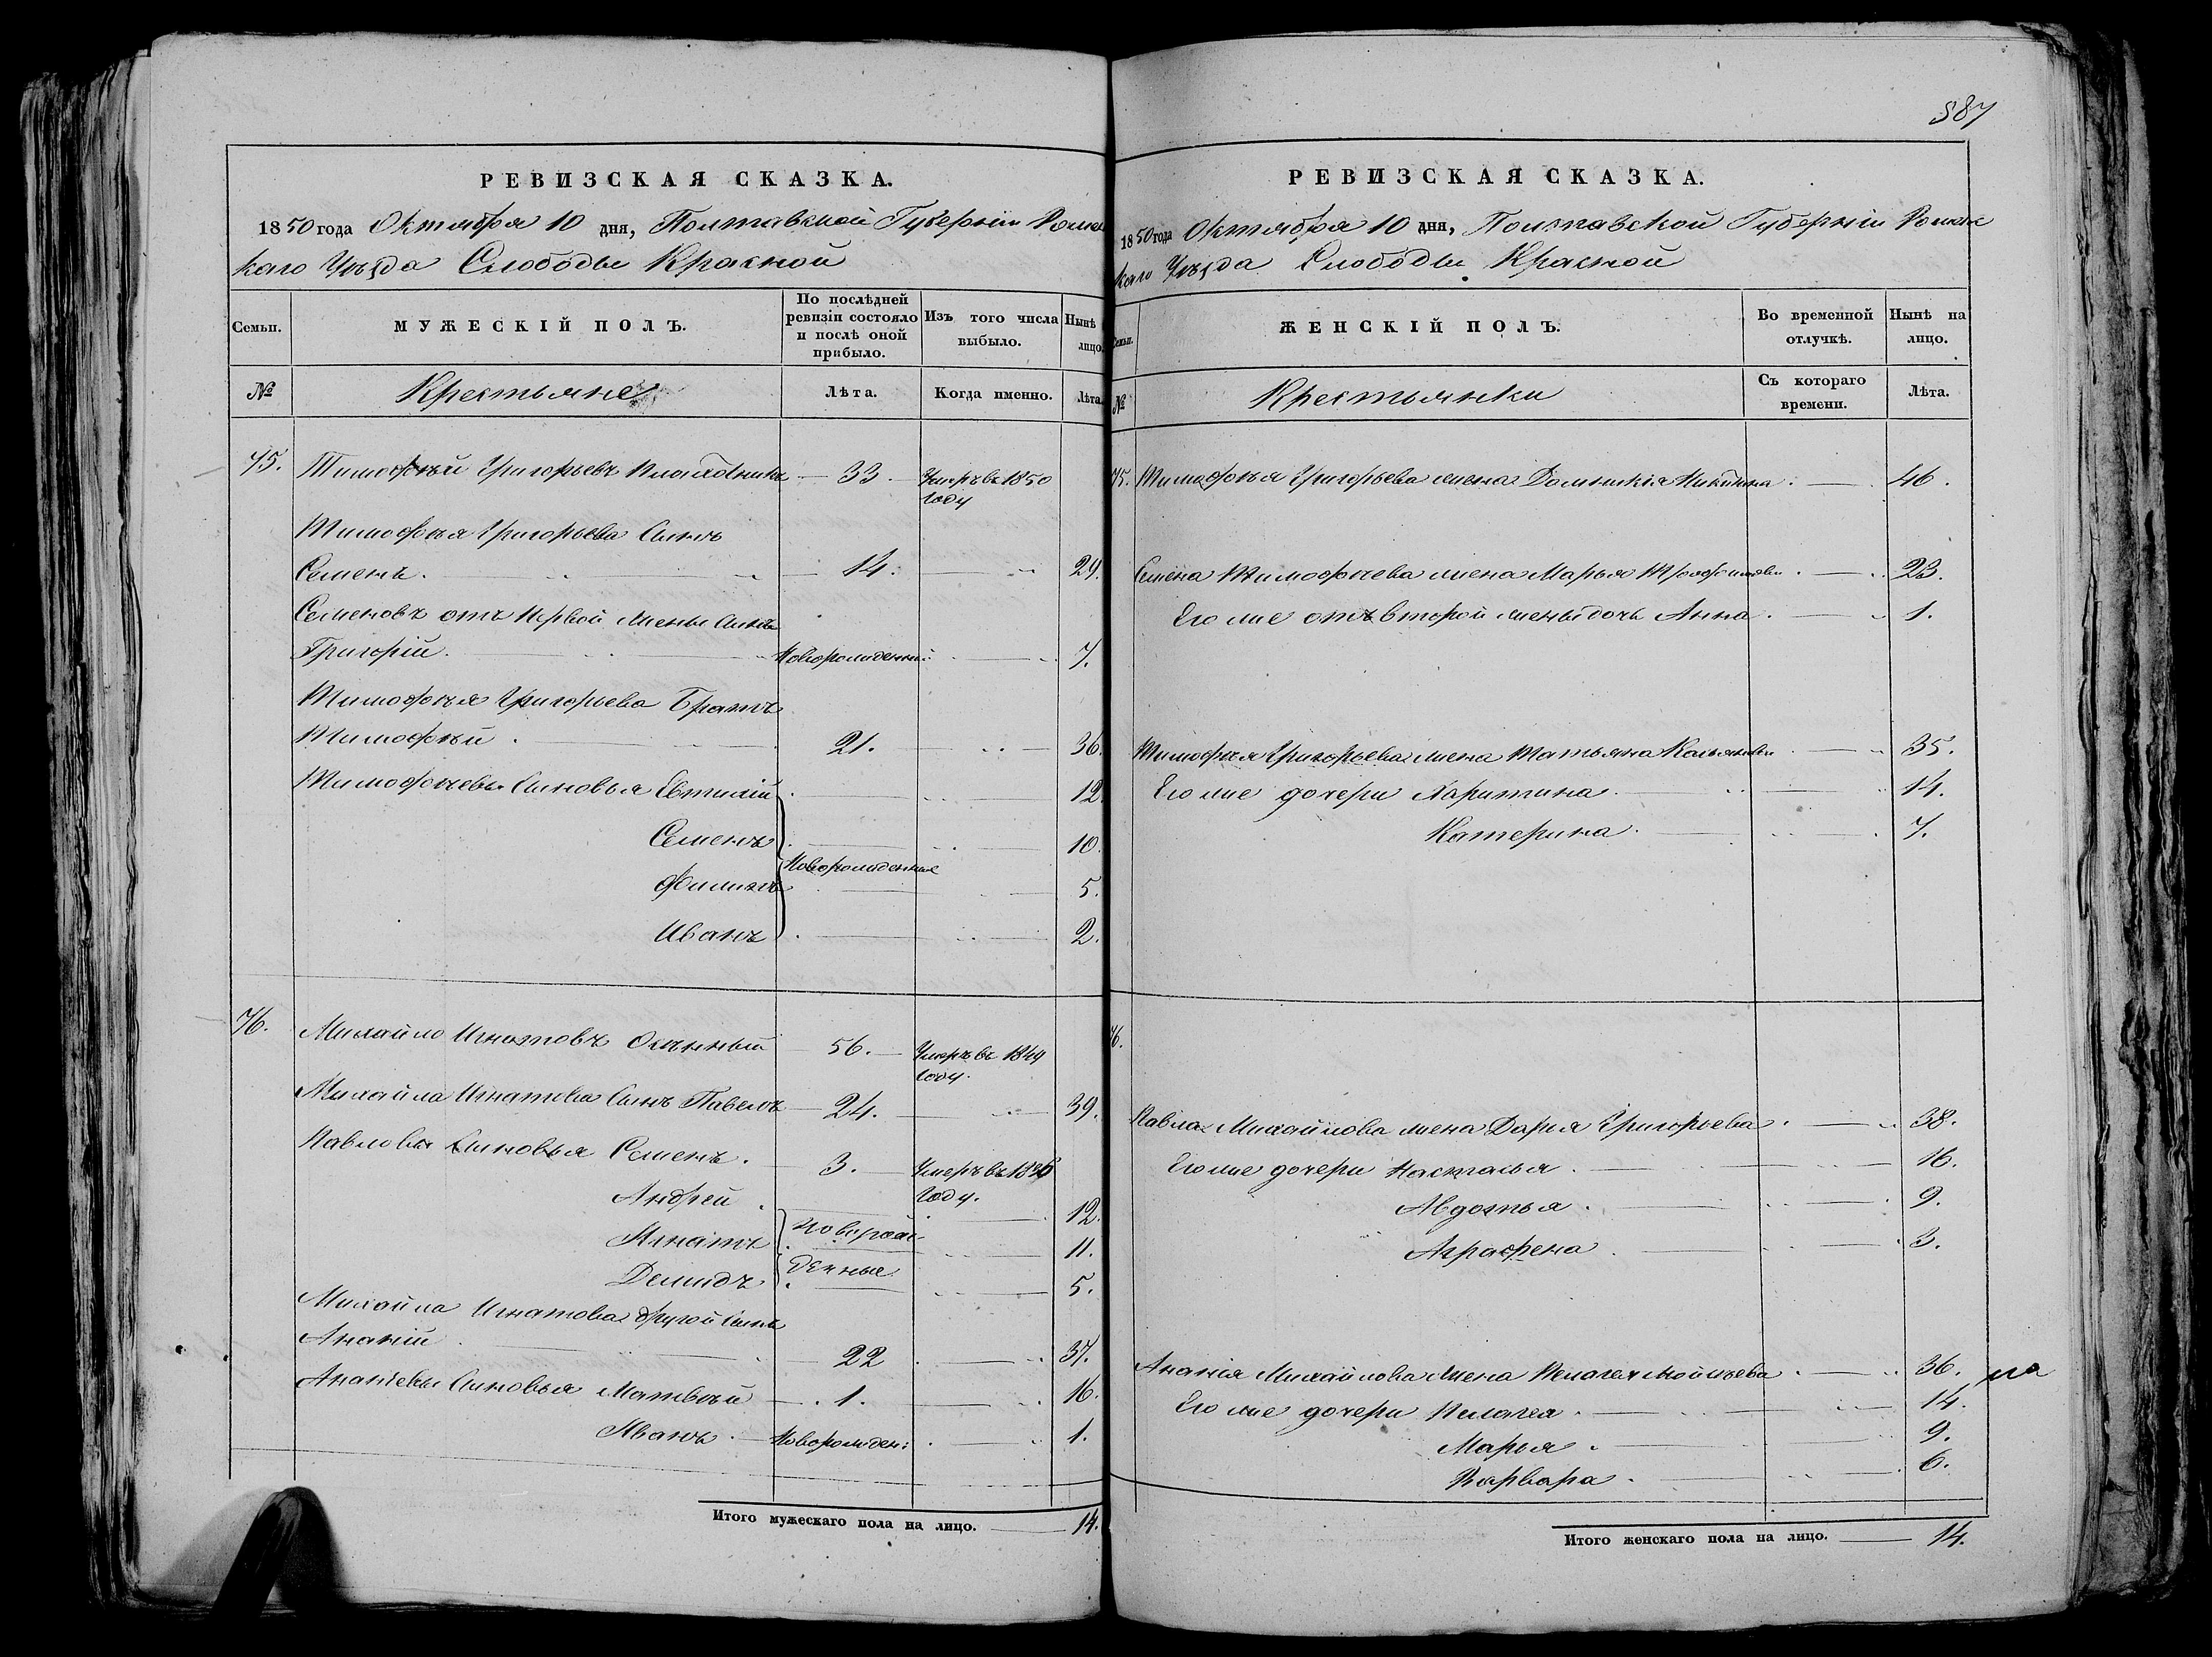 РЕВИЗСКАЯ СКАЗКА.
1850 года Октября 10 дня, Полтавской Губерніи Ромен
каго Уѣзда Слободы Красной
Семьи. МУЖЕСКІЙ ПОЛЪ. По послѣдней ревизіи состояло и послѣ оной прибыло. Изъ того числа выбыло. Нынѣ лицо.
№ Крестьяне Лѣта. Когда именно. Лѣта.
75. Тимофѣй Григорьевъ 33. Умеръ въ 1850 году
Тимофѣя Григорьева Сынъ
Семенъ. 14. 29.
Семеновъ отъ первой жены сынъ
Григорій. Новорожденный 7.
Тимофѣя Григорьева Братъ
Тимофѣй. 21. 36.
Тимофѣевы Сыновья Евтихій 12.
Семенъ 10.
Новорожденные
Филипъ 5.
Иванъ 2.
76. Михайло Игнатовъ 56. Умеръ въ 1849 году.
Михайла Игнатова Сынъ Павелъ 24. 39.
Павловы Сыновья Семенъ. 3. Умеръ въ 1836 году.
Андрей. 12.
Игнатъ новорож- 11.
Демидъ денные 5.
Михайла Игнатова другой Сынъ
Ананій 22 37.
Ананіевы Сыновья Матвѣй 1. 16.
Иванъ. Новорожден: 1.
Итого мужескаго пола на лицо. 14.
587
РЕВИЗСКАЯ СКАЗКА.
1850 года Октября 10 дня, Полтавской Губерніи Ромен
каго Уѣзда Слободы Красной
Семьи. ЖЕНСКІЙ ПОЛЪ. Во временной отлучкѣ. Нынѣ на лицо.
№ Крестьянки Съ котораго времени. Лѣта.
75. Тимофѣя Григорьева жена Домникія Никитина. 46.
Семена Тимофѣева жена Марья Трофимова. 23.
Его же отъ второй жены дочь Анна. 1.
Тимофѣя Григорьева жена Татьяна 35.
Его же дочери Харитина. 14.
Катерина. 7.
76.
Павла Михайлова жена Дарья Григорьева. 38.
Его же дочери Настасья. 16.
Авдотья. 9.
Аграфена. 3.
Ананія Михайлова Жена Пелагея Мойсѣева. 36.
Его же дочери Пелагея. 14.
Марья. 9.
Варвара. 6.
Итого женскаго пола на лицо. 14.